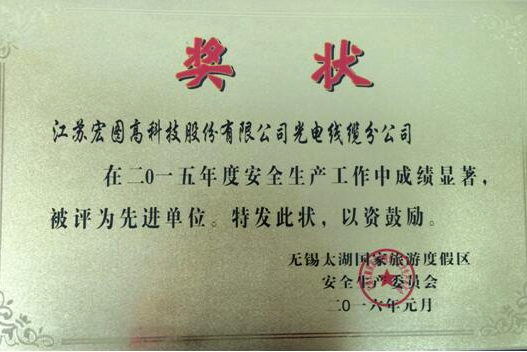 奖状
江苏宏图高科技股份有限公司光电线缆分公司
在二0一五年度安全生产工作中成绩显著，
被评为先进单位。特发此状，以资鼓励。
无锡太湖国家旅游度假区
安全生产委员会
二0一六年元月